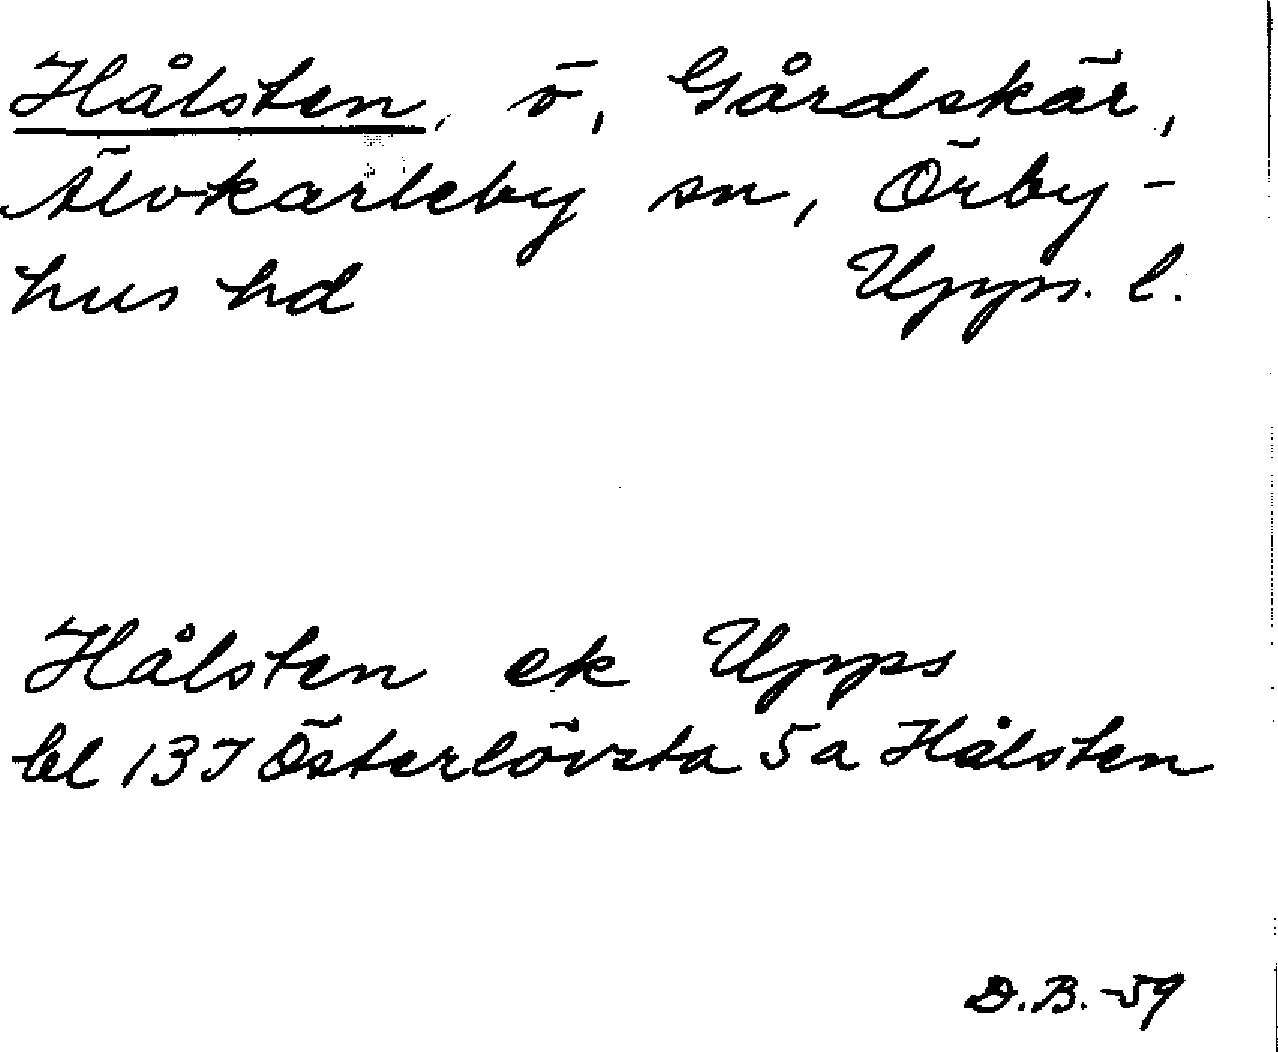 Hålsten, ö, Gårdskär,
Älvkarleby sn, Örby-
hus hd Upps. l.
Hålsten ek Upps
bl 137 Österlövsta 5a Hålsten
D.B.-59